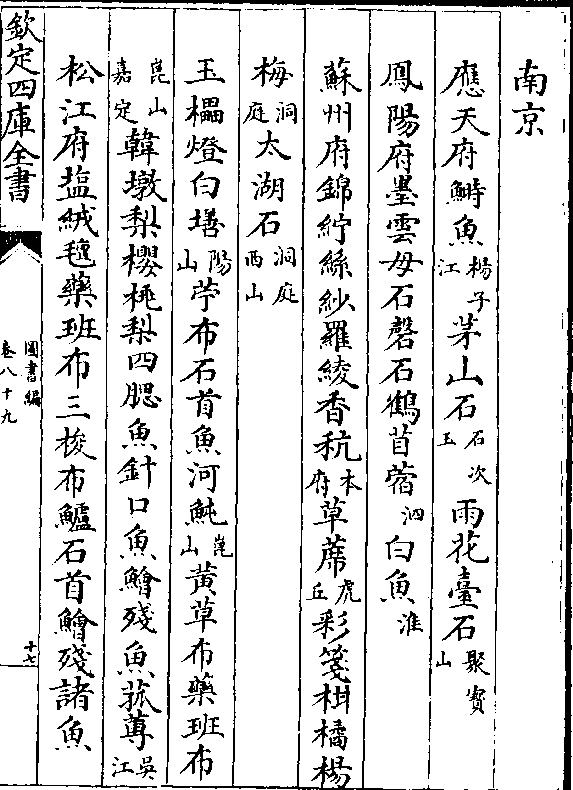 南京
應天府鰣魚楊子江茅山石石次玉雨花臺石聚寳山
鳳陽府墨雲母石磬石鶴苜蓿泗白魚淮
蘇州府錦紵絲紗羅綾香秔本府草蓆虎丘彩箋柑橘楊
梅洞庭太湖石洞庭西山
玉櫑燈白墡陽山苧布石首魚河魨崑山黃草布藥班布
崑山嘉定韓墩梨櫻桃梨四腮魚針口魚鱠殘魚菰蓴吳江
松江府塩絨毯藥班布三梭布鱸石首鱠殘諸魚
欽定四庫全書
圖書編
卷八十九
十七